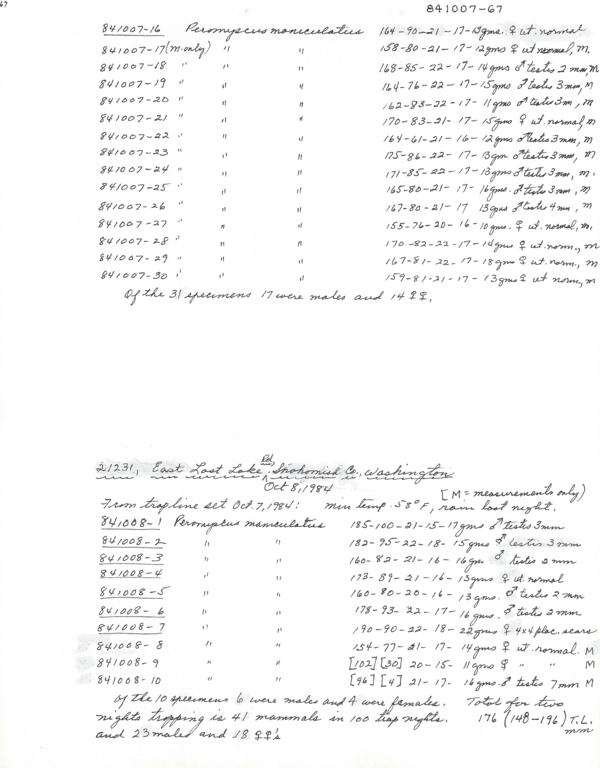 67
841007-67
841007-16 Peromyscus maniculatus 164-90-21-17-13gms. ♀ ut. normal
841007-17 (M. only) " " 158-80-21-17-12gms ♀ ut normal, M.
841007-18 " " 168-85-22-17-14gms ♂ testes 2mm, M
841007-19 " " 164-76-22-17-15gms ♂ testis 3mm, M
841007-20 " " 162-83-22-17-11gms ♂ testis 3m, M
841007-21 " " 170-83-21-17-15gms ♀ ut. normal, m
841007-22 " " 164-61-21-16-12gms ♂ testes 3mm, m
841007-23 " " 175-86-22-17-13gm ♂ testis 3mm, m
841007-24 " " 171-85-22-17-13gms ♂ testes 3mm, m.
841007-25 " " 165-80-21-17-16gms. ♂ testis 3mm, m
841007-26 " " 167-80-21-17 13gms ♂ testis 4mm, m
841007-27 " " 155-76-20-16-10gms. ♀ ut. normal, m.
841007-28 " " 170-82-22-17-14gms ♀ ut. norm., m
841007-29 " " 167-81-22-17-18gms ♀ ut. norm., m
841007-30 " " 159-81-21-17-13gms ♀ ut norm, m
Of the 31 specimens 17 were males and 14 ♀♀.
21231, East Lost Lake Rd, Snohomish Co., Washington
Oct 8, 1984
[M = measurements only)
From trapline set Oct. 7, 1984: min temp. 58°F, rain last night.
841008-1 Peromyscus maniculatus 185-100-21-15-17gms ♂ testis 3mm
841008-2 " " 182-95-22-18-15gms ♂ testis 3mm
841008-3 " " 160-82-21-16-16gms ♂ testis 2mm
841008-4 " " 173-89-21-16-13gms ♀ ut. normal
841008-5 " " 160-80-20-16-13gms. ♂ testes 2mm
841008-6 " " 178-93-22-17-16gms. ♂ testis 2mm
841008-7 " " 190-90-22-18-22gms ♀ 4x4 plac. scars
841008-8 " " 154-77-21-17-14gms ♀ ut. normal. M
841008-9 " " [102] [30] 20-15-11gms ♀ " " M
841008-10 " " [96] [4] 21-17-16gms ♂ testes 7mm M
Of the 10 specimens 6 were males and 4 were females. Total for two
nights trapping is 41 mammals in 100 trap nights. 176 (148-196) T.L.
and 23 males and 18 ♀♀'s mm